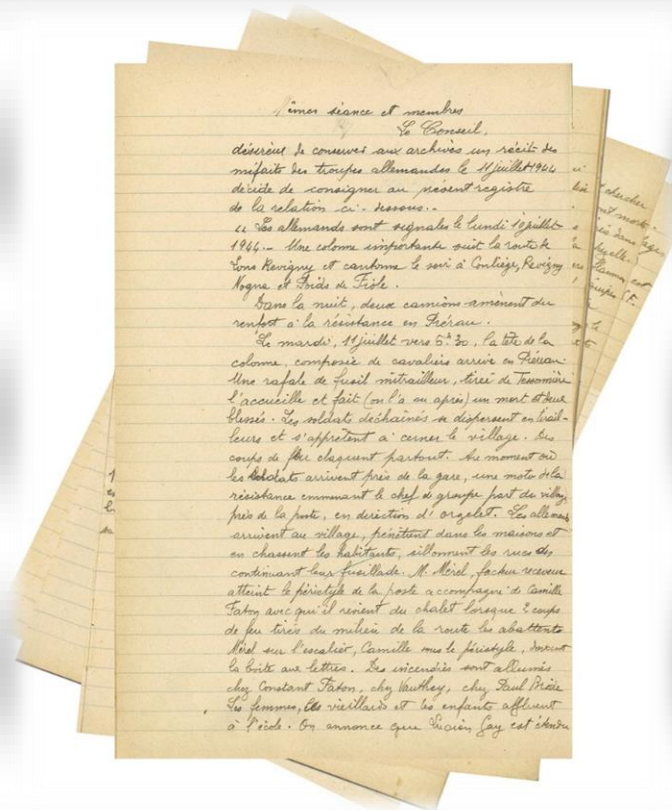 êmes séance et membres
Le Conseil,
désireux de conserver aux archives un récit des
méfaits des troupes allemandes le 11 juillet 1944
décide de consigner au présent registre
de la relation ci-dessous..
"Les allemands sont signalés le lundi 10 juillet
1944.- Une colonne importante suit la route de
Lons Revigny et cantonne le soir à Conliège, Revigny
Nogna et Poids de Fiole.
Dans la nuit, deux camions amènent du
renfort à la résistance en Piérau.
Le mardi, 11 juillet vers 5h30, la tête de la
colonne, composée de cavaliers arrive en Piérau
Une rafale de fusil mitrailleur, tirée de
l'accueille et fait (on l'a su après) un mort et deux
blessés. Les soldats déchaînés se dispersent en tirail-
leurs et s'apprêtent à cerner le village. Des
coups de feu claquent partout. Au moment où
les soldats arrivent près de la gare, une moto de la
résistance emmenant le chef de groupe part du villag
près de la poste, en direction d'orgelet. Les alleman
arrivent au village, pénètrent dans les maisons et
en chassent les habitants, sillonnent les rues en
continuant leur fusillade. M. Mérel, facteur receveur
atteint le péristyle de la poste accompagné de Camille
Faton avec qui il revient du chalet lorsque 2 coups
de feu tirés du milieu de la route les abattent
Mérel sur l'escalier, Camille sous le péristyle, devant
la boîte aux lettres. Des incendies sont allumés
chez Constant Faton, chez Vauthey, chez Paul
Les femmes, les vieillards et les enfants affluent
à l'école. On annonce que Lucien Gay est étendu
chercher